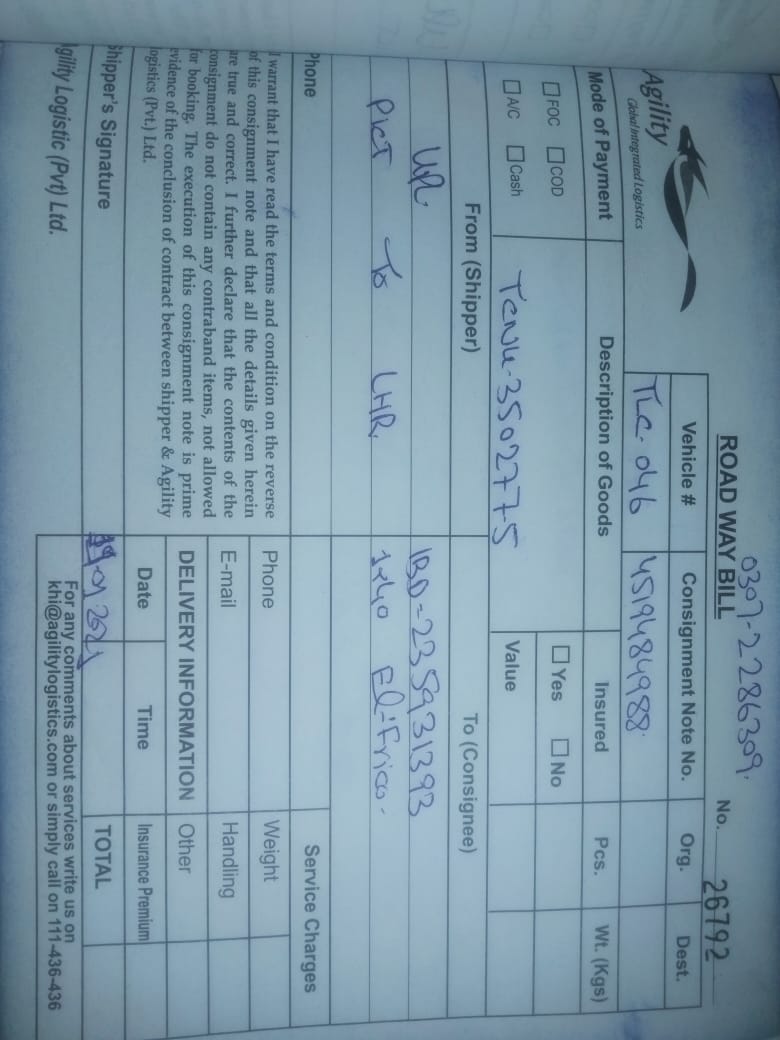 0307-2286309.
ROAD WAY BILL
No. 26792
Agility
Global Integrated Logistics
Vehicle # Consignment Note No. Org. Dest.
TLC-046 4519484988
Mode of Payment Description of Goods Insured Pcs. Wt. (Kgs)
FOC COD Yes No
A/C Cash TCNU-3502775 Value
From (Shipper) To (Consignee)
IBD=235931393
PICT To LHR 1x40 El-Frico-
Phone Service Charges
I warrant that I have read the terms and condition on the reverse
of this consignment note and that all the details given herein
are true and correct. I further declare that the contents of the
consignment do not contain any contraband items, not allowed
for booking. The execution of this consignment note is prime
evidence of the conclusion of contract between shipper & Agility
ogistics (Pvt.) Ltd.
Phone Weight
E-mail Handling
DELIVERY INFORMATION Other
Date Time Insurance Premium
Shipper's Signature 01 2021 TOTAL
Agility Logistic (Pvt) Ltd.
For any comments about services write us on
khi@agilitylogistics.com or simply call on 111-436-436